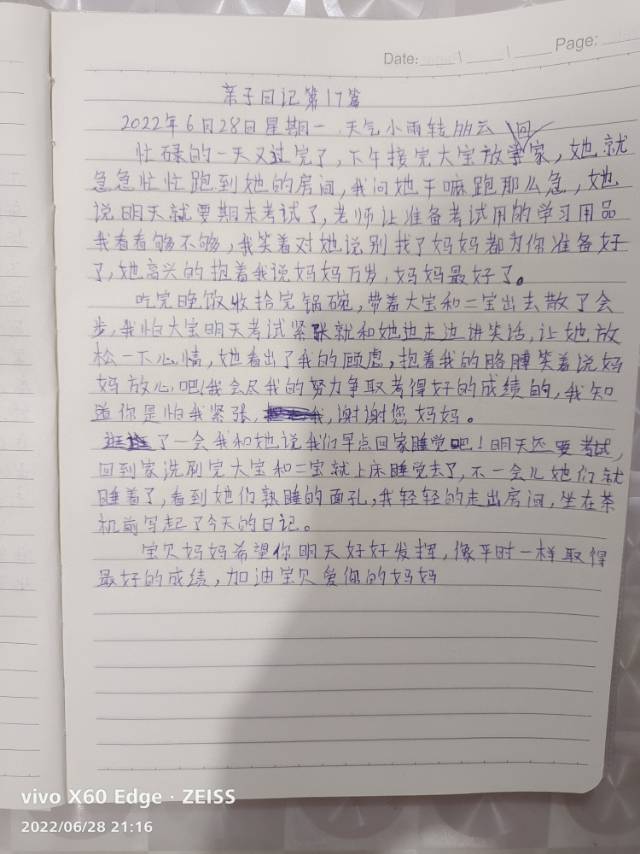 Date: Page:
亲子日记第17篇
2022年6月28日星期一 天气小雨转多云
忙碌的一天又过完了，下午接完大宝放学回家，她就
急急忙忙跑到她的房间，我问她干嘛跑那么急，她
说明天就要期末考试了，老师让准备考试用的学习用品
我看看够不够，我笑着对她说别找了妈妈都为你准备好
了，她高兴的抱着我说妈妈万岁，妈妈最好了。
吃完晚饭收拾完锅碗，带着大宝和二宝出去散了会
步，我怕大宝明天考试紧张就和她边走边讲笑话，让她放
松一下心情，她看出了我的顾虑，抱着我的胳膊笑着说妈
妈放心吧！我会尽我的努力争取考得好的成绩的，我知
道你是怕我紧张，谢谢您妈妈。
了一会我和她说我们早点回家睡觉吧！明天还要考试，
回到家洗刷完大宝和二宝就上床睡觉去了，不一会儿她们就
睡着了，看到她们熟睡的面孔，我轻轻的走出房间，坐在茶
机前写起了今天的日记。
宝贝妈妈希望你明天好好发挥，像平时一样取得
最好的成绩，加油宝贝爱你的妈妈
vivo X60 Edge · ZEISS
2022/06/28 21:16